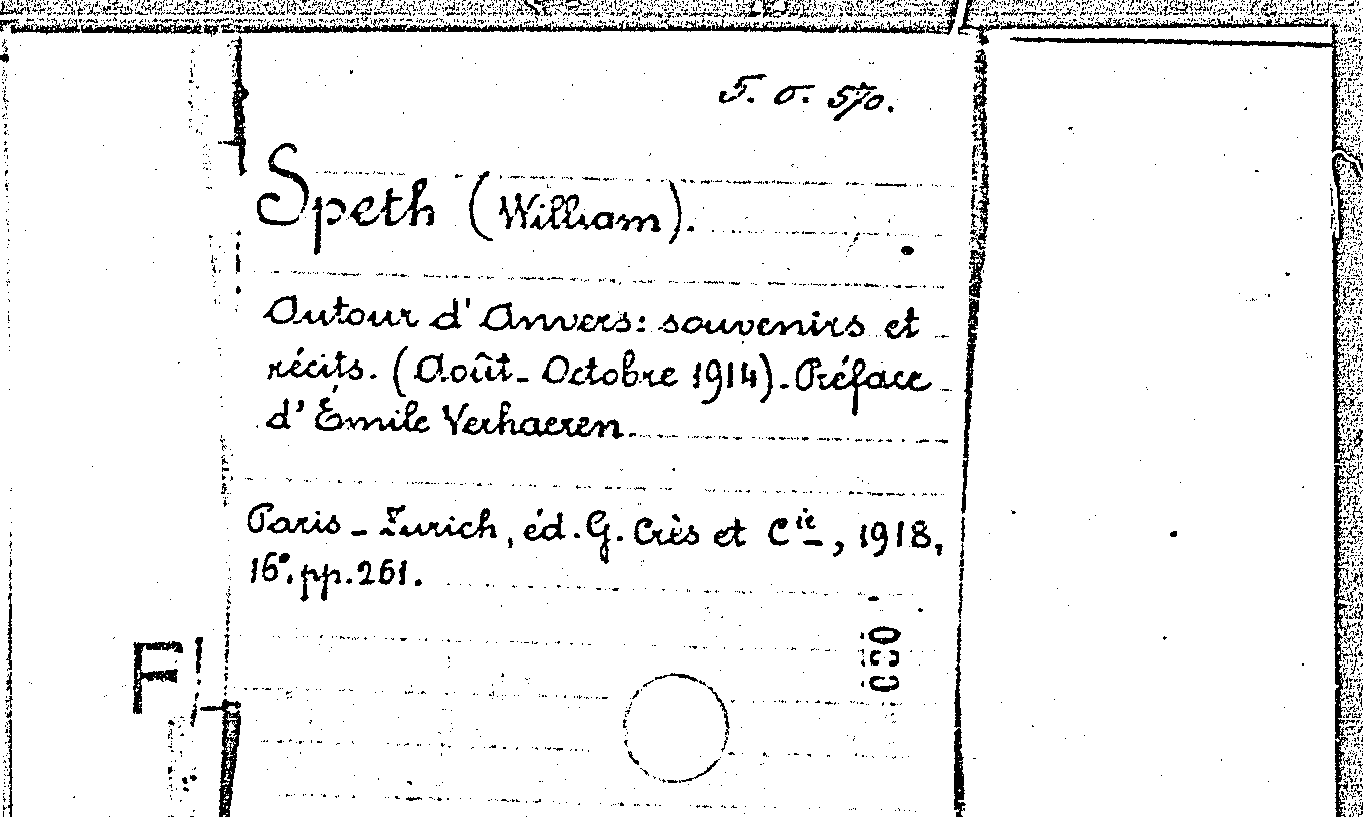 5. σ. 570.
Speth (William).
Autour d'Anvers: souvenirs et
récits. (Août - Octobre 1914). Préface
d'Émile Verhaeren.
Paris - Zurich, éd. G. Crès et Cie, 1918,
16°. pp. 261.
F